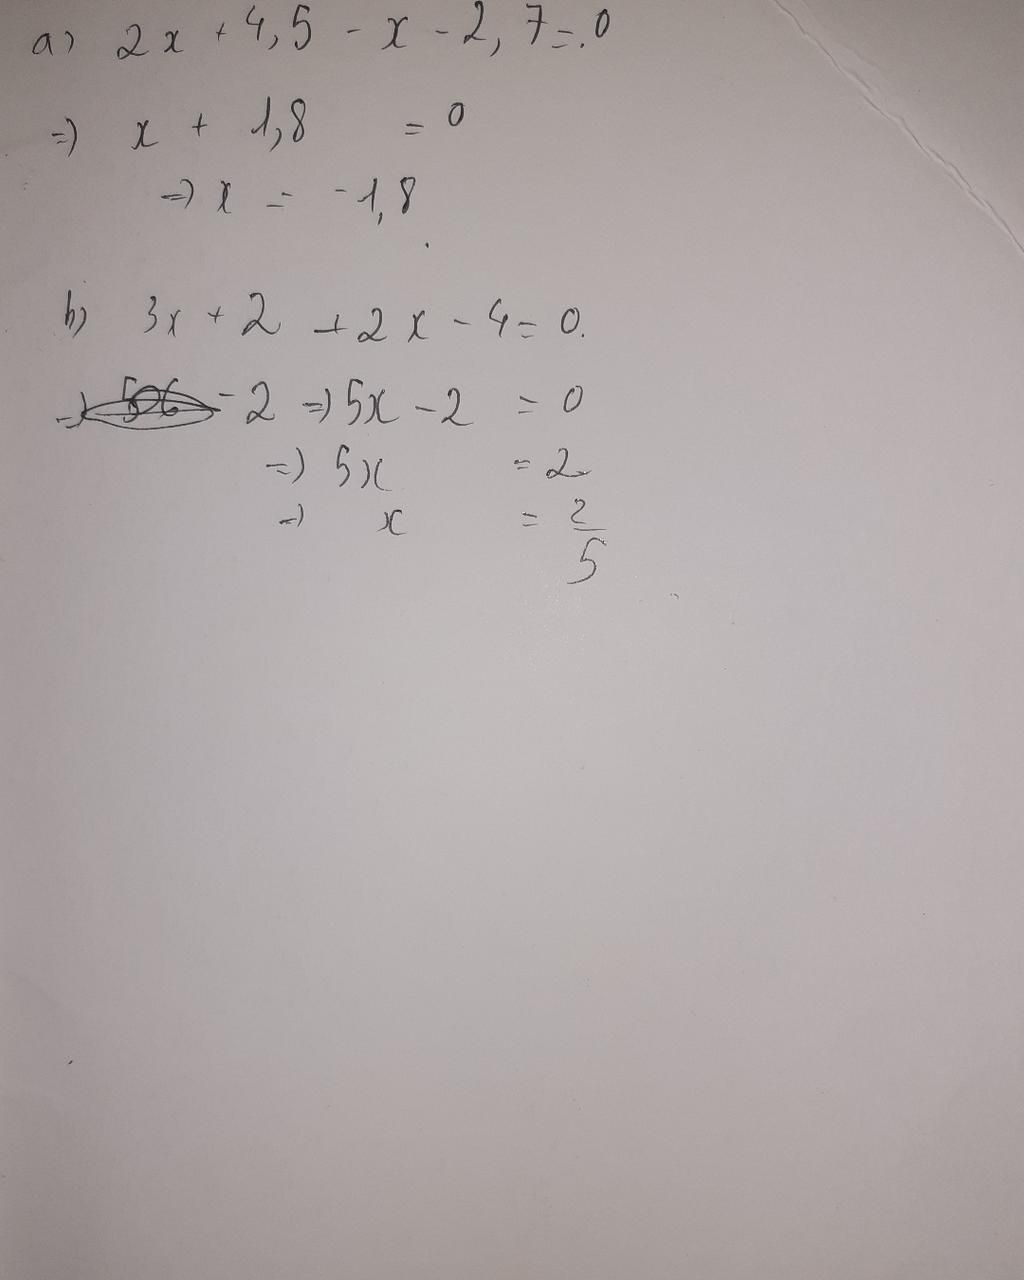 a) 2x + 4,5 - x - 2,7 = 0
=) x + 1,8 = 0
=) x = -1,8
b) 3x + 2 + 2x - 4 = 0.
=) - 2 =) 5x - 2 = 0
=) 5x = 2
=) x = 2/5